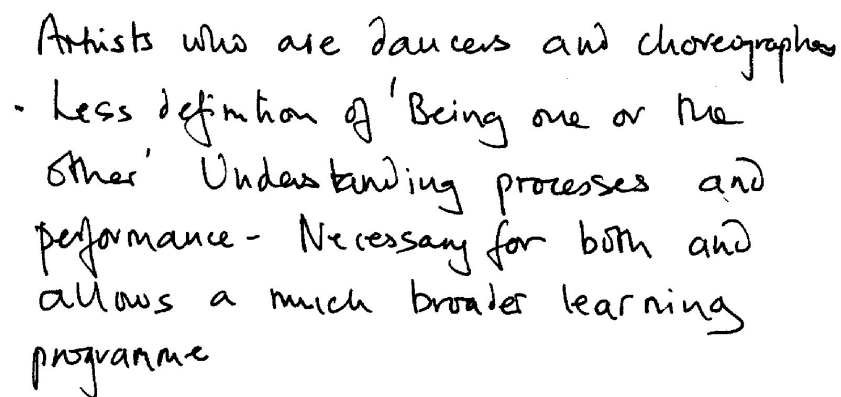 Artists who are dancers and choreographers
- Less definition of 'Being one or the
other' Understanding processes and
performance - Necessary for both and
allows a much broader learning
programme